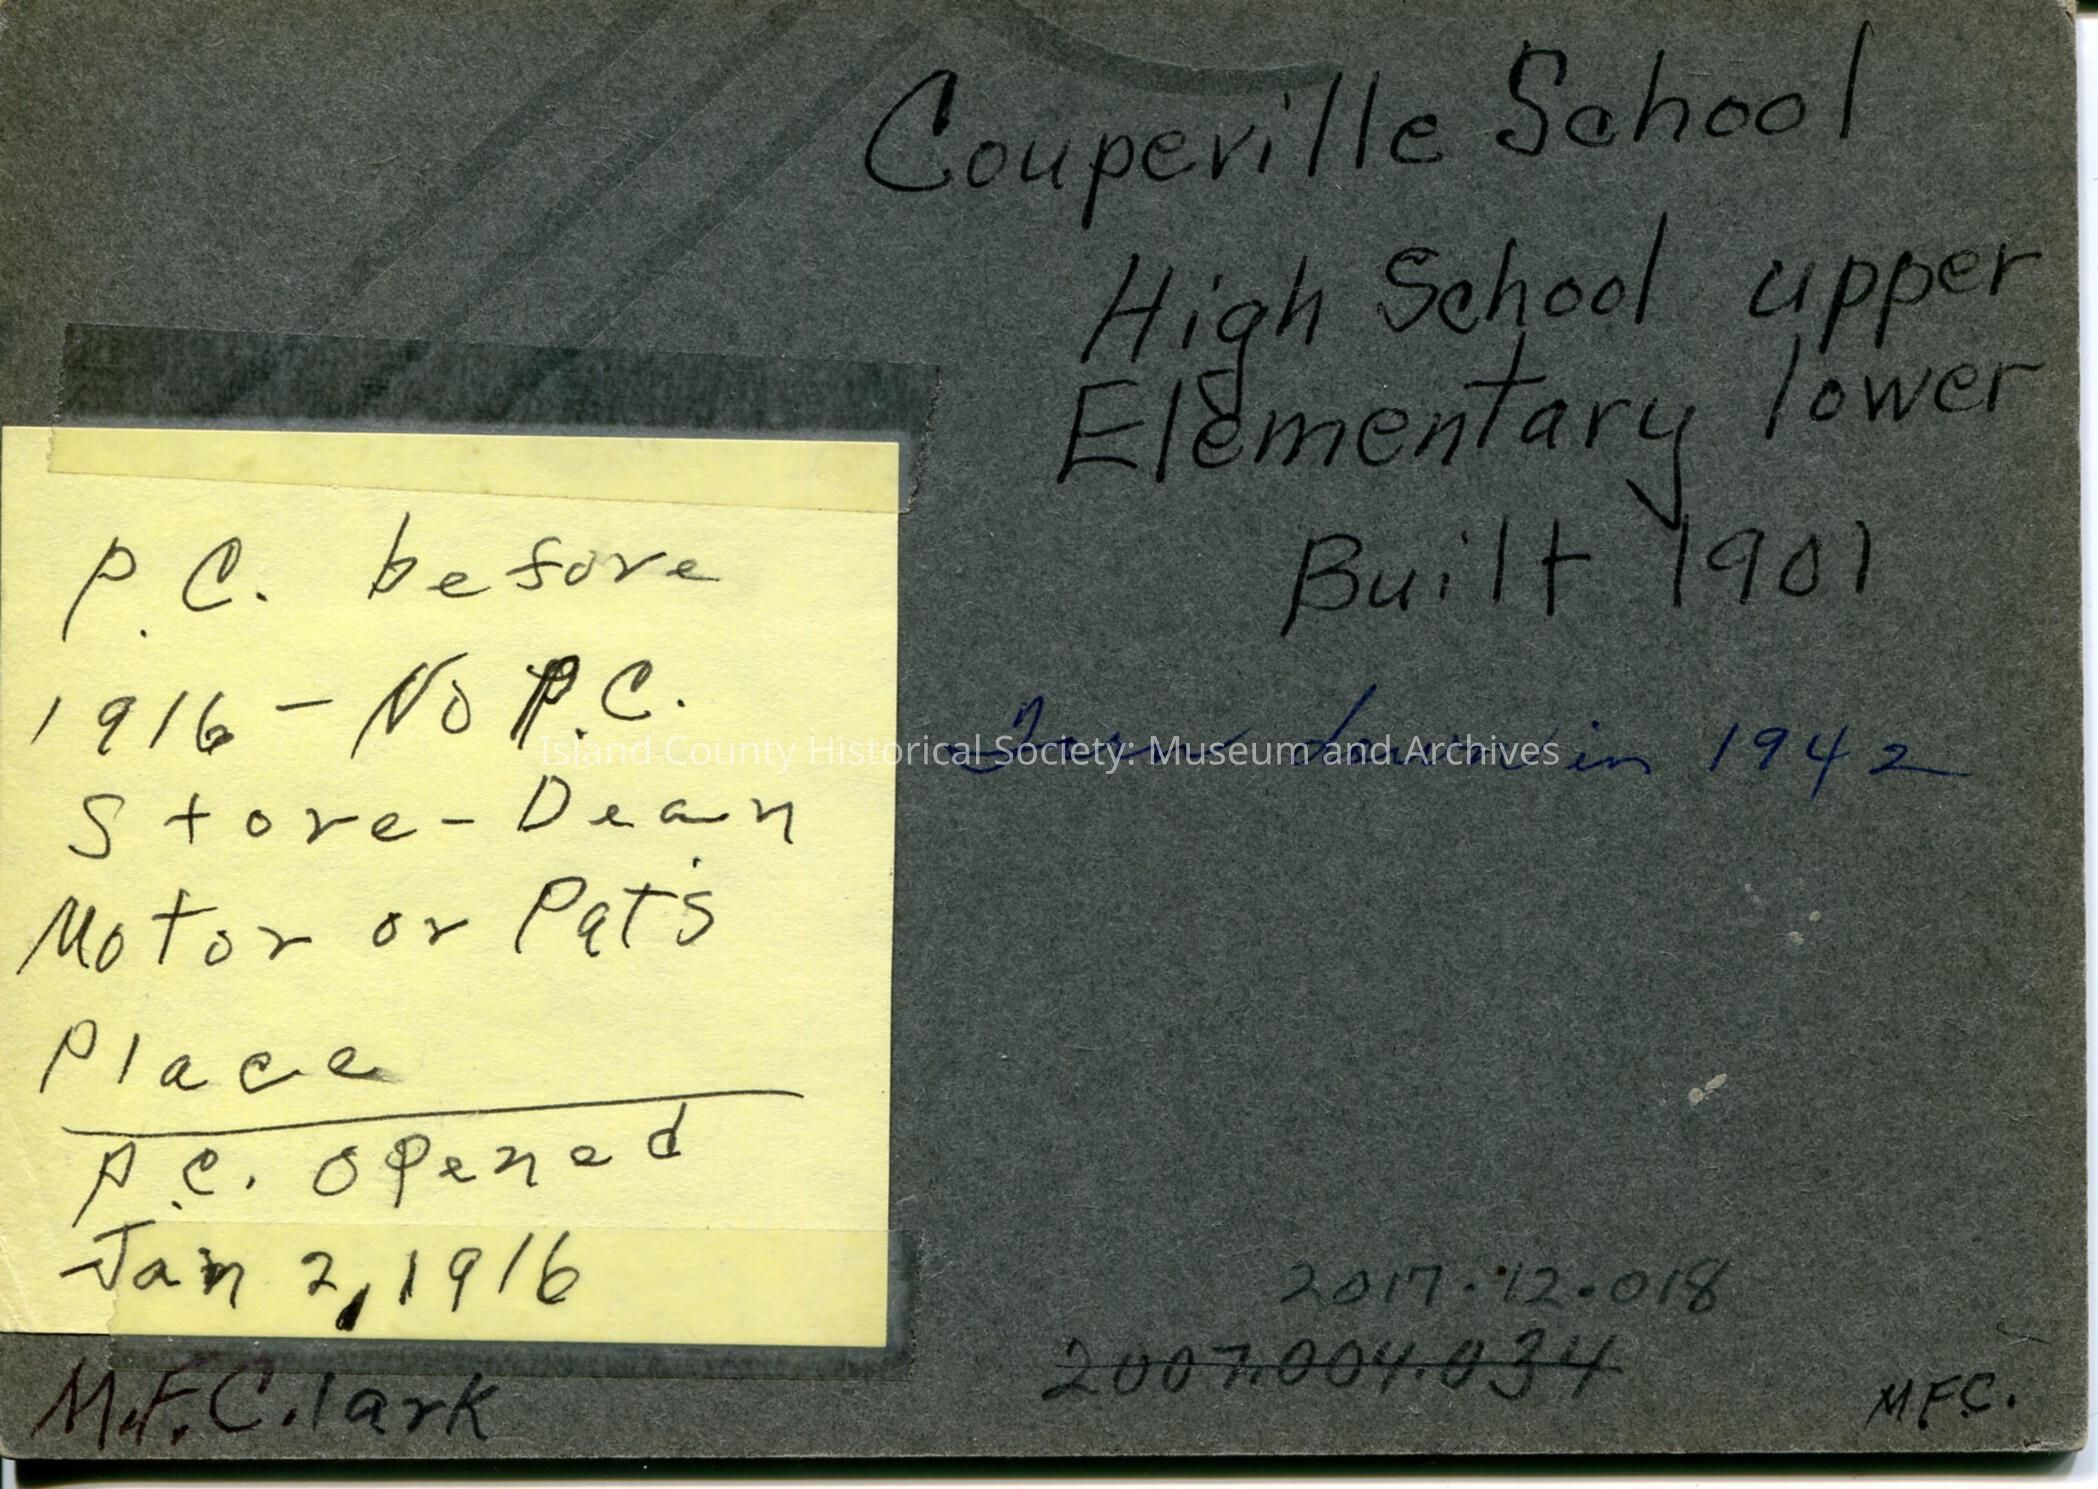 Couperville School
High School upper
Elementary lower
Built 1901
Torn down in 1942
P.C. before
1916 - No P.C.
Store - Dean
Motor or Pat's
Place
P.C. opened
Jan 2, 1916
Island County Historical Society: Museum and Archives
2017.12.018
2007.004.034
M.F.C.lark
MFC.